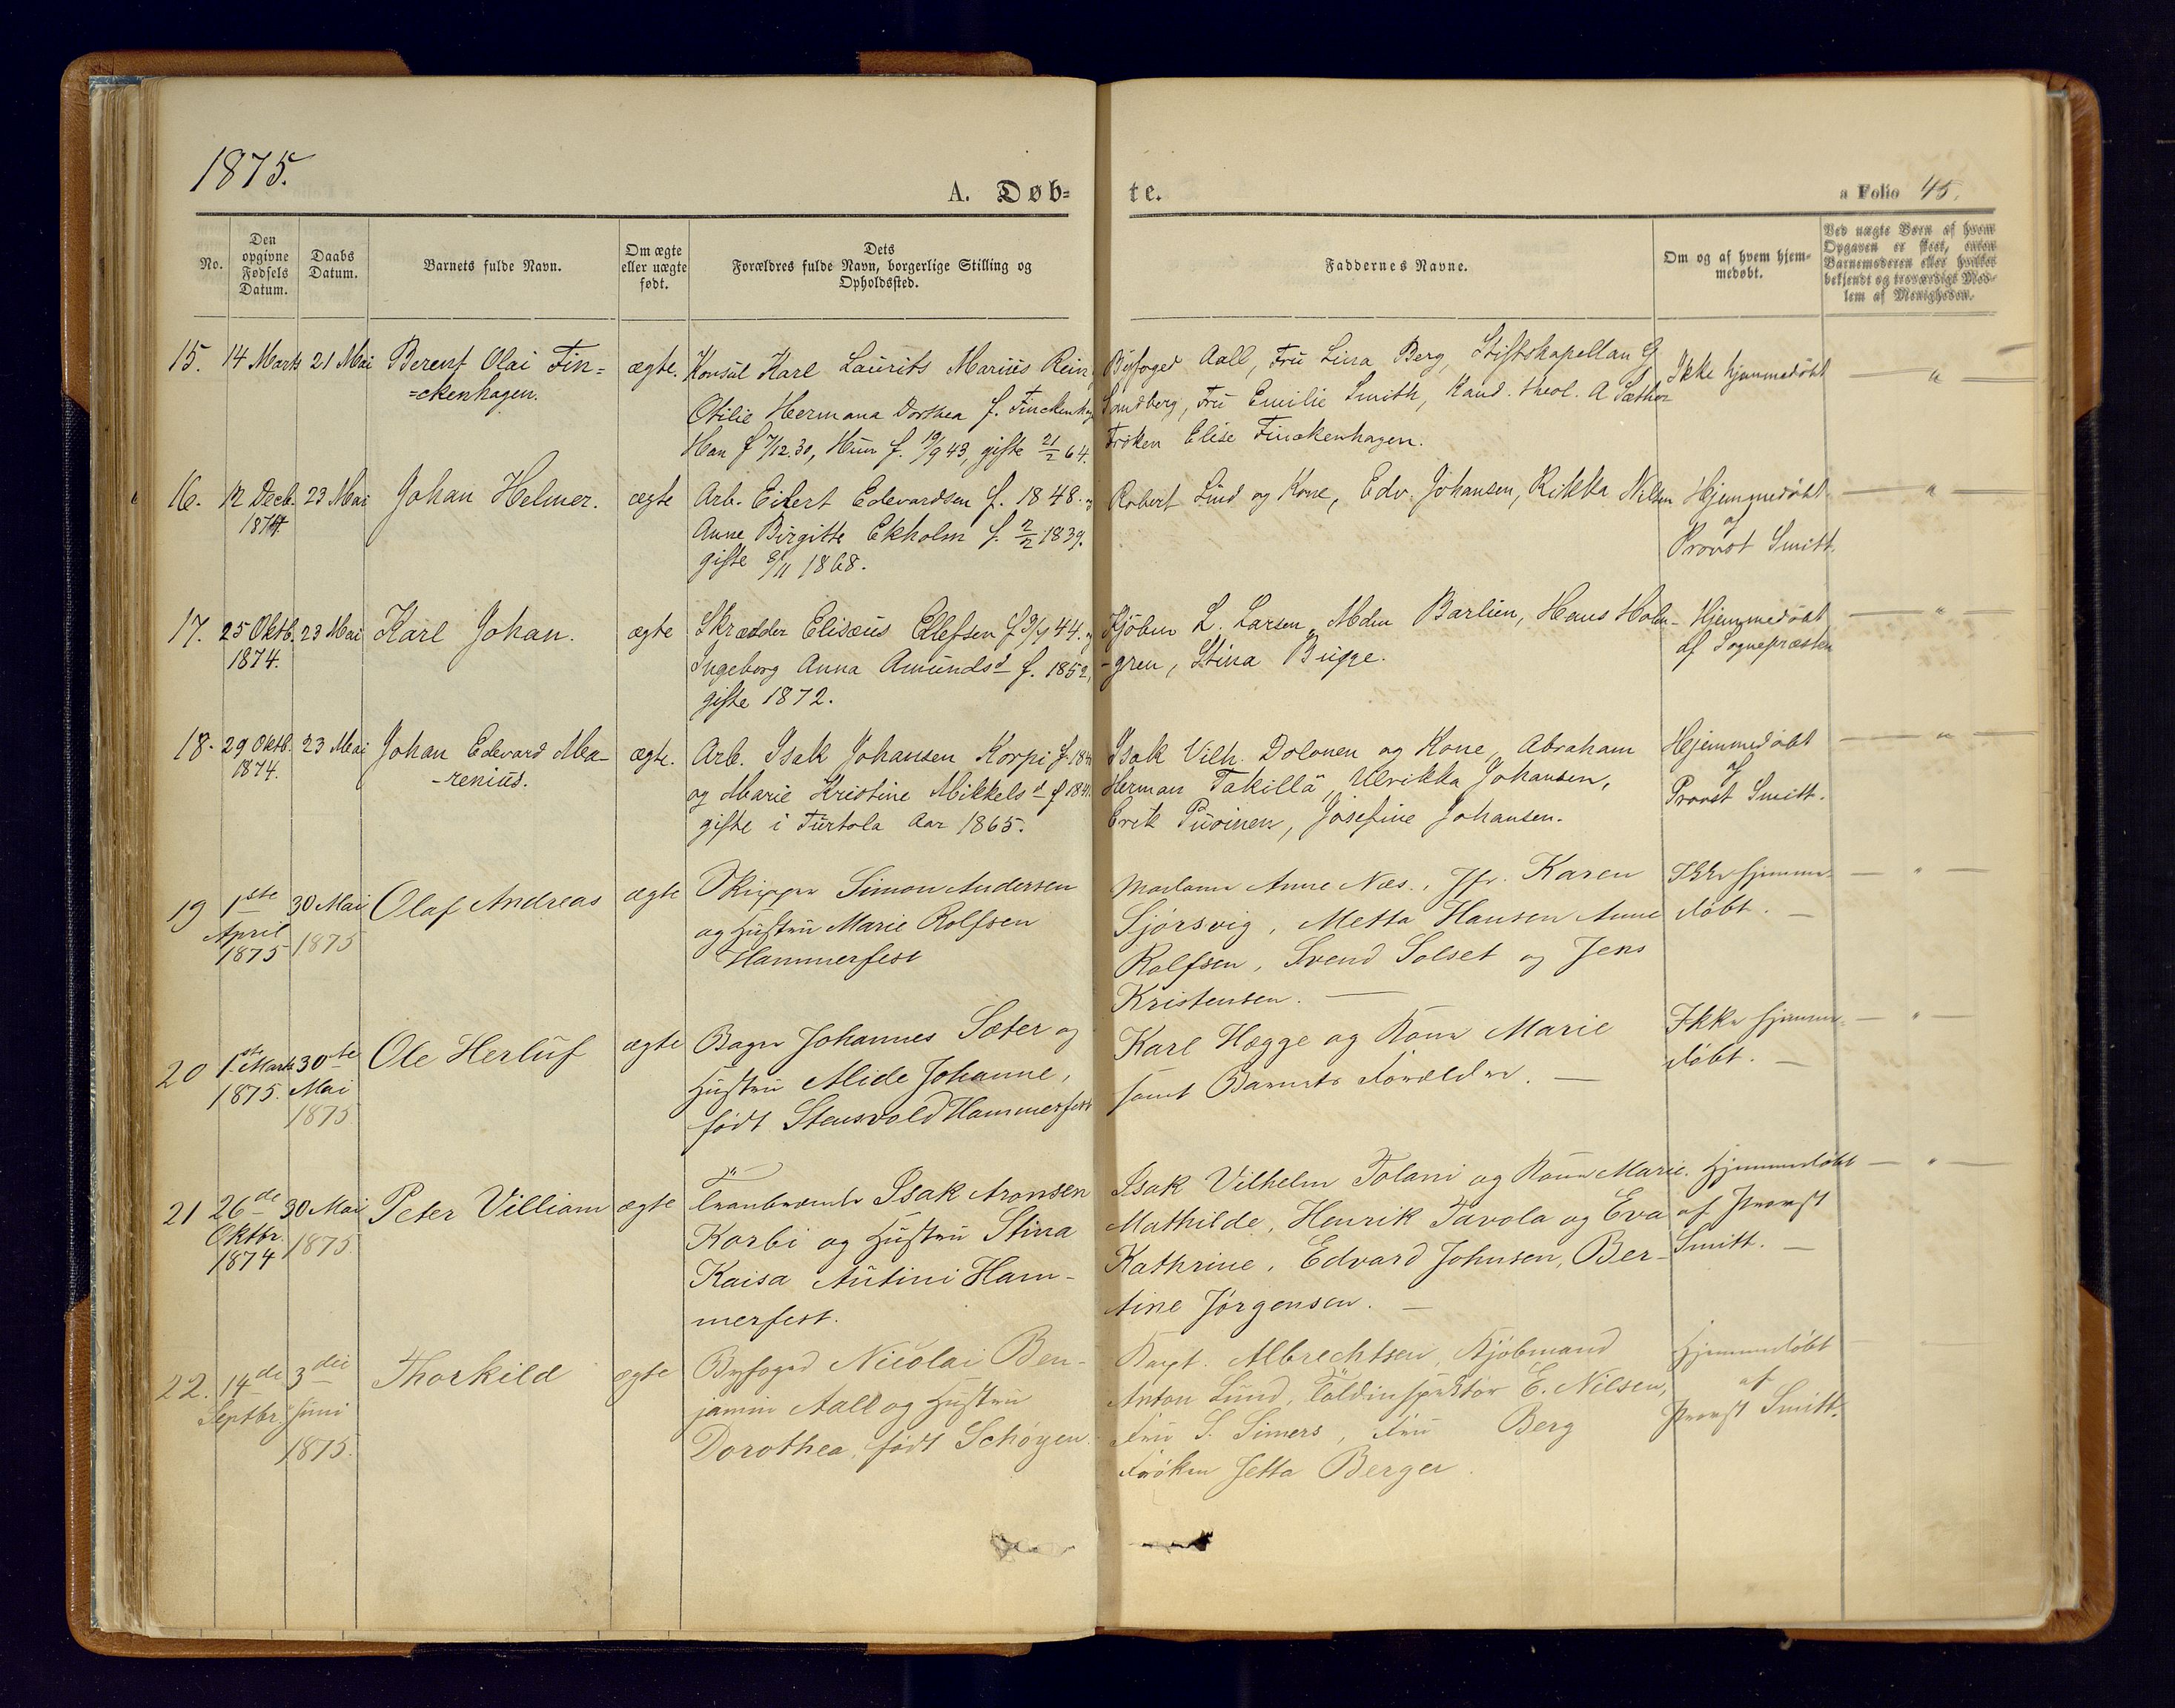 1875.
A. Døb=
te.
a Folio 45.
No.
Den opgivne Fødsels Datum.
Daabs Datum.
Barnets fulde Navn.
Om ægte eller uægte født.
Dets Forældres fulde Navn, borgerlige Stilling og Opholdssted.
Faddernes Navne.
Om og af hvem hjem-
medøbt.
Ved uægte Børn af hvem
Opgaven er skeet, enten
Barnemoderen eller hvilket
bekjendt og troværdigt Med-
lem af Menigheden.
15. 14 Marts 21 Mai Berent Olai Fin=
=ckenhagen.
ægte. Konsul Karl Laurits Marius Rein
Otilie Hermana Dorthea f. Finckenhag
Han f 7/12.30, Hun f. 19/9 43, gifte 21/2 64.
Byfoged Aall, Fru Lina Berg, Stiftskapellan G
Sandberg, Fru Emilie Smith, Kand. theol. A Sæther
Frøken Elise Finckenhagen.
Ikke hjemmedøbt
16. 12 Decb. 1874 23 Mai Johan Helmer. ægte
Arb. Eilert Edevardsen f. 1848.
Anne Birgitte Ekholm f. 2/2 1839.
gifte 8/11 1868.
Robert Lind og Kone, Edv. Johansen, Rikka Nilsen
Hjemmedøbt
af
Provst Smitt.
17. 25 Oktb. 1874. 23 Mai Karl Johan. ægte
Skrædder Elisæus Ellefsen f 3/4 44.
Ingeborg Anna Amundsd f. 1852,
gifte 1872.
Kjøbm L. Larsen, Mdm Barlien, Hans Holm-
-gren, Stina Bugge.
Hjemmedøbt
af Sognepræsten
18. 29 Oktb. 1874. 23 Mai Johan Edevard Ma-
-renius.
ægte.
Arb. Isak Johansen Korpi f. 184
og Marie Kristine Mikkelsd f 184
gifte i Turtola Aar 1865.
Isak Vilh. Dolonen og Kone, Abraham
Herman Takillä, Ulrikka Johansen,
Erik Puoinen, Josefine Johansen.
Hjemmedøbt
af
Provst Smitt.
19 1ste April 1875 30 Mai 1875 Olaf Andreas ægte
Skipper Simon Andersen
og Hustru Marie Rolfsen
Hammerfest
Madame Anne Næs, Jfr. Karen
Sjørsvig, Metta Hansen Anne
Rolfsen, Svend Solset og Jens
Kristensen.
Ikke hjemme-
døbt.
20 1ste Marts 1875. 30te Mai 1875 Ole Herluf ægte
Bager Johannes Sæter og
Hustru Alide Johanne,
født Stensvold Hammerfest
Karl Hegge og Kone Marie
samt Barnets Forældre.
Ikke hjemme-
døbt.
21 26de Oktbr. 1874 30 Mai 1875. Peter Villiam ægte
Tranbrænder Isak Aronsen
Korbi og Hustru Stina
Kaisa Autini Ham-
merfest.
Isak Vilhelm Tolani og Kone Marie
Mathilde, Henrik Tavola og Eva
Kathrine, Edvard Johnsen, Ber-
tine Jørgensen.
Hjemmedøbt
af Provst
Smitt.
22. 14de Septbr. 3die Juni 1875. Thorkild ægte
Byfoged Nicolai Ben-
jamin Aall og Hustru
Dorothea, født Schøyen.
Kapt. Albrechtsen, Kjøbmand
Anton Lund, Toldinspektør E. Nilsen,
Fru S. Simers, Fru Berg
Frøken Jetta Berger.
Hjemmedøbt
af
Provst Smitt.